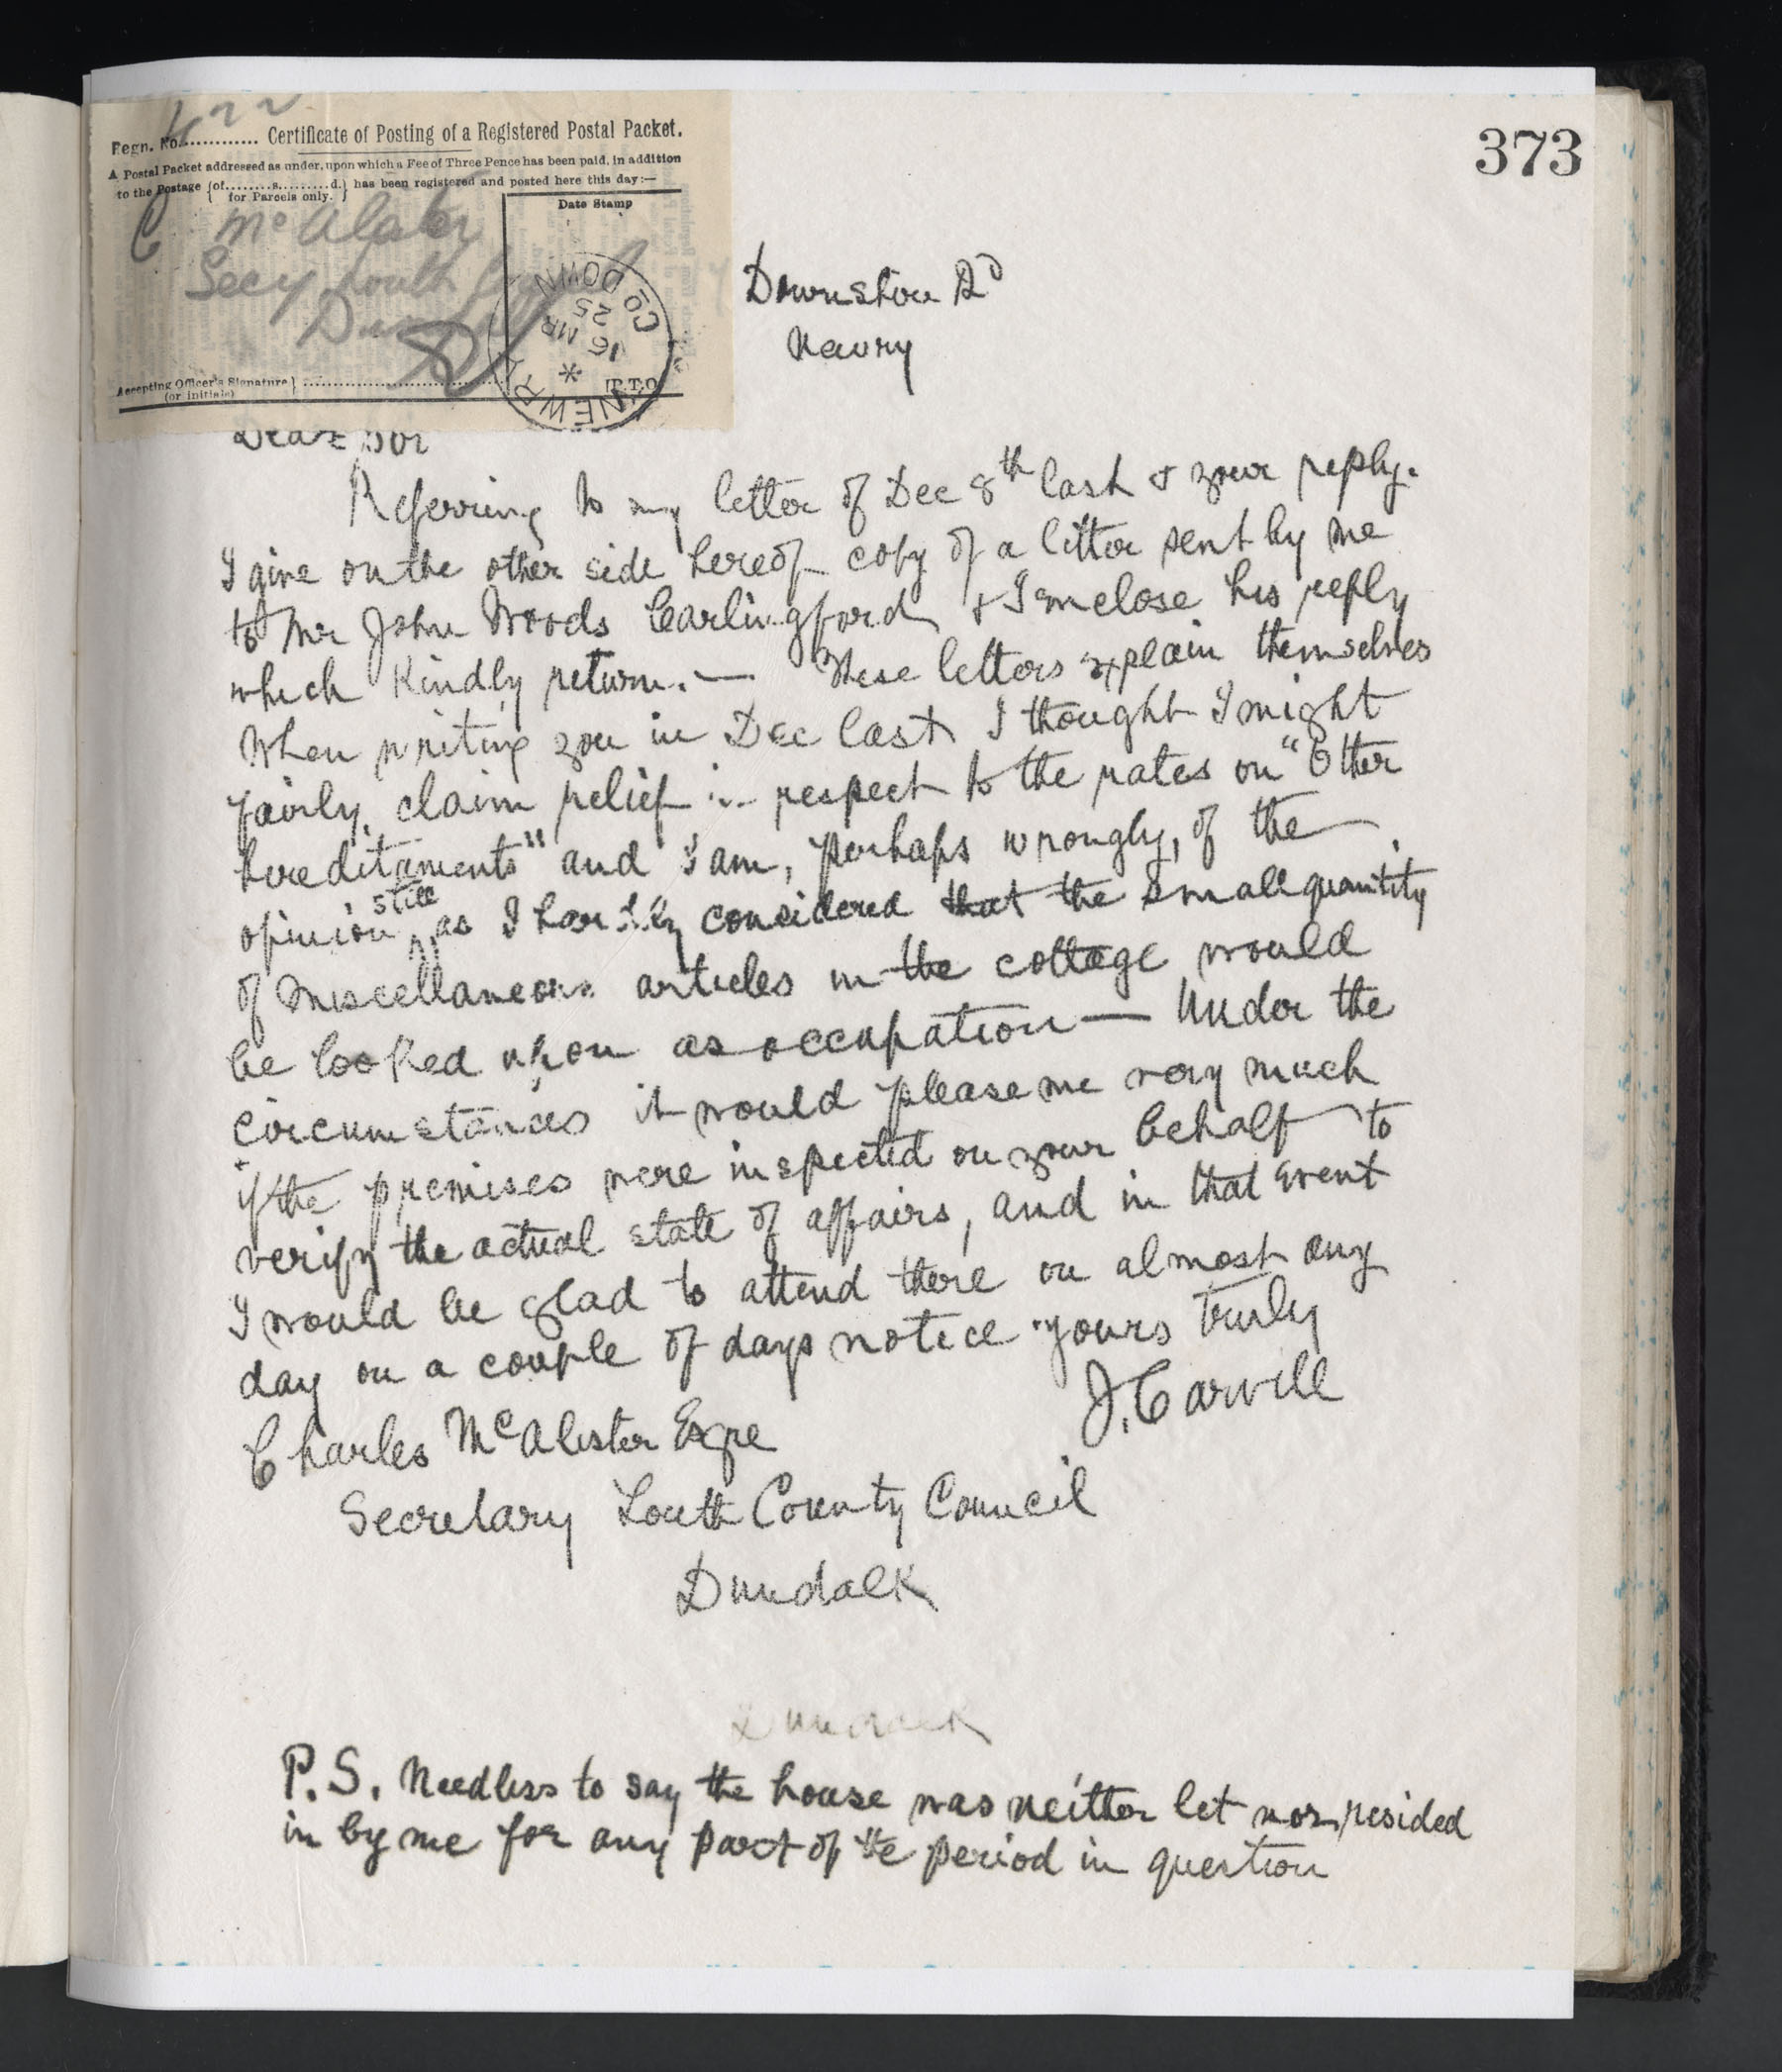 373
Regn. No. 422 Certificate of Posting of a Registered Postal Packet.
A Postal Packet addressed as under, upon which a Fee of Three Pence has been paid, in addition
to the Postage {of.........s.........d.} has been registered and posted here this day:—
for Parcels only.
Date Stamp
C McAlister
Secy Louth
NEWRY CO. DOWN
16 MR 25
Accepting Officer's Signature}
(or initials)
[P.T.O.
Downshire Rd
Newry
Dear Sir
Referring to my letter of Dec 8th last & your reply.
I give on the other side hereof copy of a letter sent by me
to Mr John Woods Carlingford & I enclose his reply
which kindly return. — These letters explain themselves
When writing you in Dec last I thought I might
fairly claim relief in respect to the rates on "Other
hereditaments" and I am, perhaps wrongly, of the
opinion still, as I hardly considered that the small quantity
of miscellaneous articles in the cottage would
be looked upon as occupation — Under the
circumstances it would please me very much
if the premises were inspected on your behalf to
verify the actual state of affairs, and in that event
I would be glad to attend there on almost any
day on a couple of days notice Yours truly
J. Carvill
Charles McAlister Esqre
Secretary Louth County Council
Dundalk
Dundalk
P.S. Needless to say the house was neither let nor resided
in by me for any part of the period in question